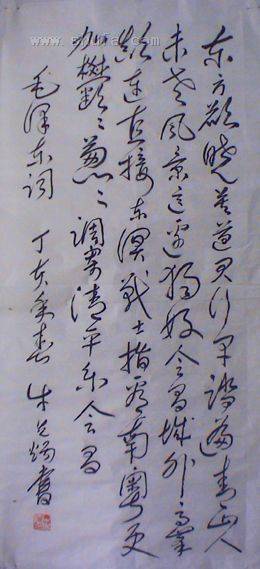 东方欲晓莫道君行早踏遍青山人
未老风景这边独好会昌城外高峰
颠连直接东溟战士指看南粤更
加郁〻葱〻调寄清平乐会昌
毛泽东词 丁亥年春 朱 书